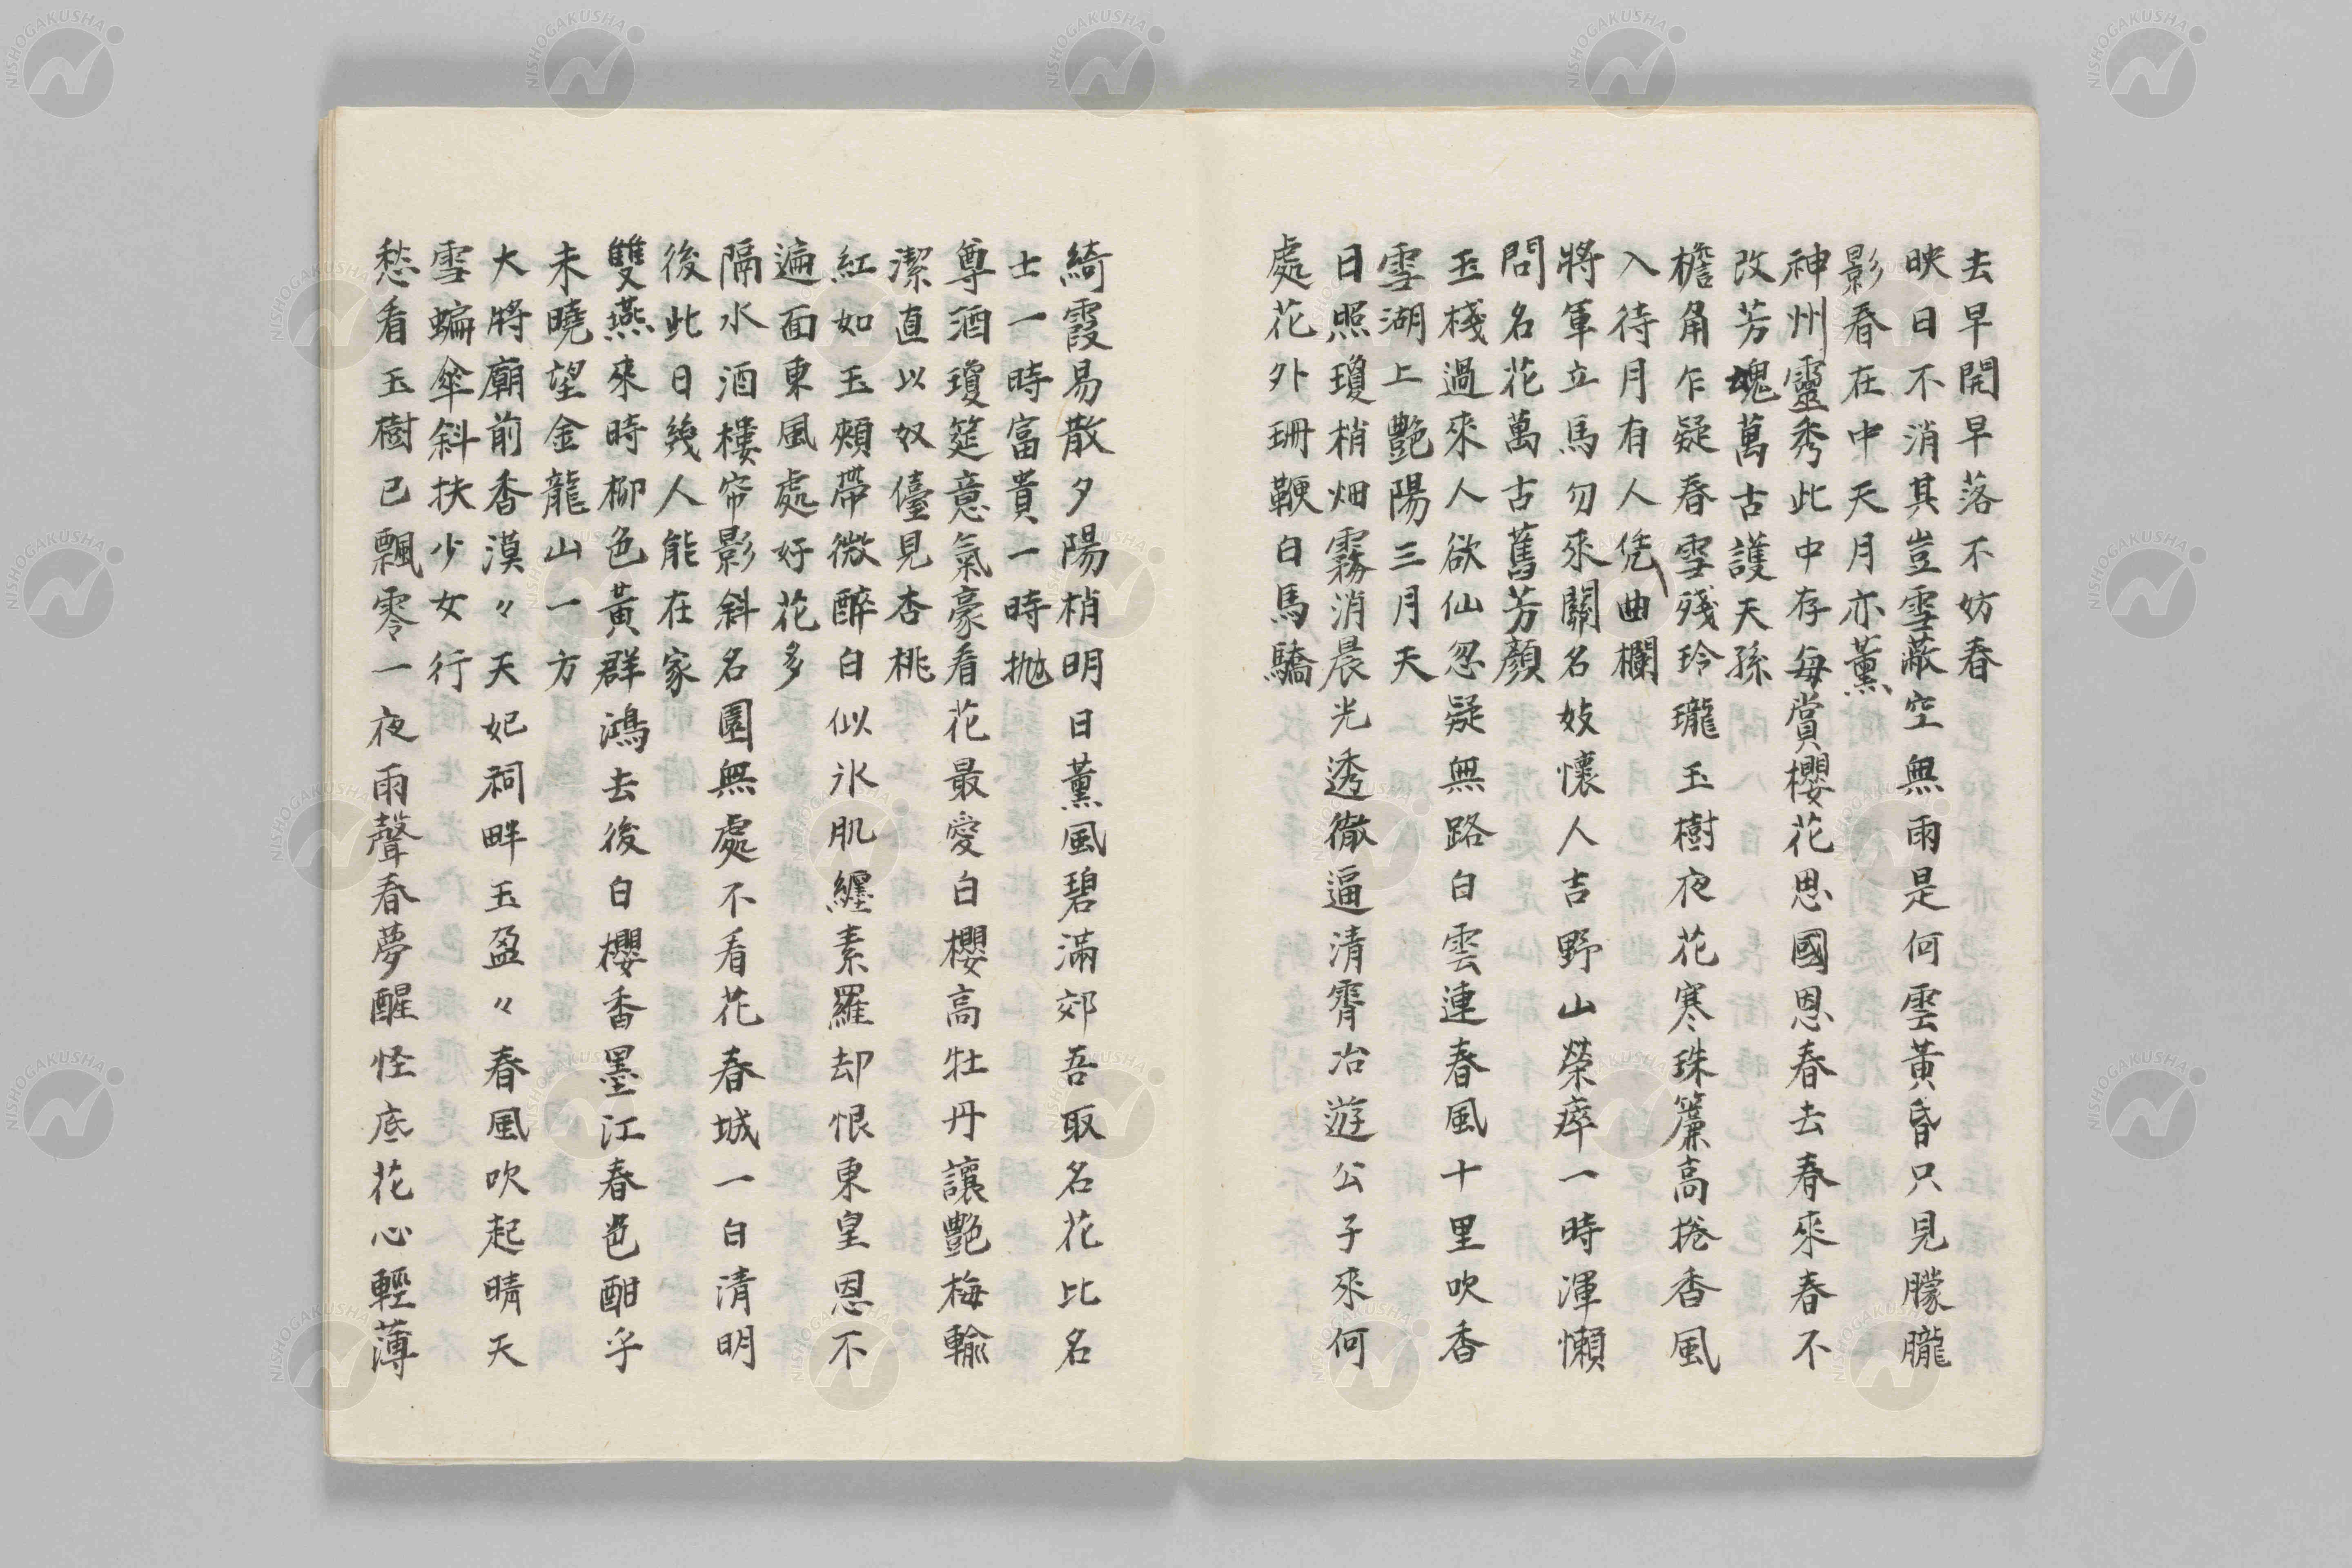 去早開早落不妨春
映日不消其豈雪蔽空無雨是何雲黃昏只見朦朧
影春在中天月亦薰
神州靈秀此中存每賞櫻花思國恩春去春來春不
改芳魂萬古護天孫
檐角乍疑春雪殘玲瓏玉樹夜花寒珠簾高捲香風
入待月有人凭曲欄
將軍立馬勿來關名妓懷人吉野山榮瘁一時渾懶
問名花萬古舊芳顏
玉棧過來人欲仙忽疑無路白雲連春風十里吹香
雪湖上艷陽三月天
日照瓊梢畑霧消晨光透徹逼清霄冶遊公子來何
處花外珊鞭白馬驕
綺霞易散夕陽梢明日薰風碧滿郊吾取名花比名
士一時富貴一時拋
尊酒瓊筵意氣豪看花最愛白櫻高牡丹讓艷梅輸
潔直以奴儓見杏桃
紅如玉頰帶微醉白似氷肌纏素羅却恨東皇恩不
遍面東風處好花多
隔水酒樓帘影斜名園無處不看花春城一白清明
後此日幾人能在家
雙燕來時柳色黃群鴻去後白櫻香墨江春色酣乎
未曉望金龍山一方
大將廟前香漠〃天妃祠畔玉盈〃春風吹起晴天
雪蝙傘斜扶少女行
愁看玉樹已飄零一夜雨聲春夢醒怪底花心輕薄
NISHOGAKUSHA